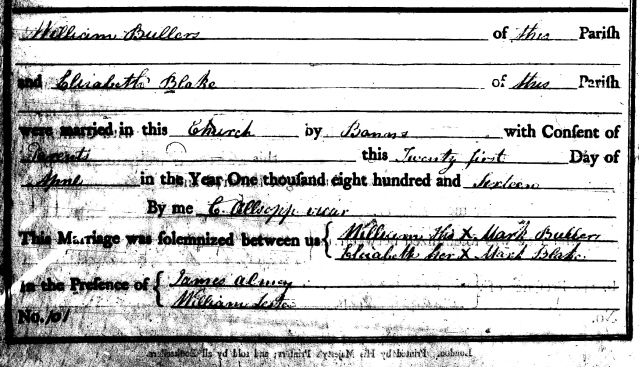 William Bullers of this Parish
and Elisabeth Blake of this Parish
were married in this Church by Banns with Consent of
Parents this Twenty first Day of
April in the Year One thousand eight hundred and Sixteen
By me C Allsopp vicar
This Marriage was solemnized between us { William His X Mark Bullers
Elisabeth Her X Mark Blake
In the Presence of { James Almey
William
No. 101
London, Printed by His Majesty's Printers; and sold by all Booksellers.